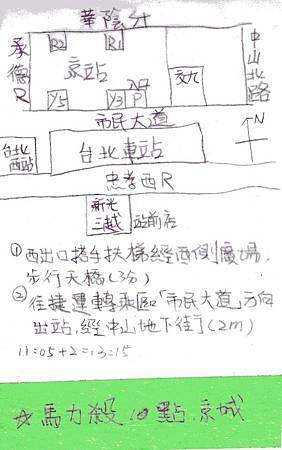 華陰街
承德R
R2
R1
京站
Y5
Y3
入口
P
交九
中山北路
市民大道
台北
西站
台北車站
N
忠孝西R
新光
三越
站前店
①西出口搭手扶梯經西側廣場.
步行天橋(3分)
②往捷運轉乘區「市民大道」方向
出站.經中山地下街(2m)
☆馬力殺10點.京城